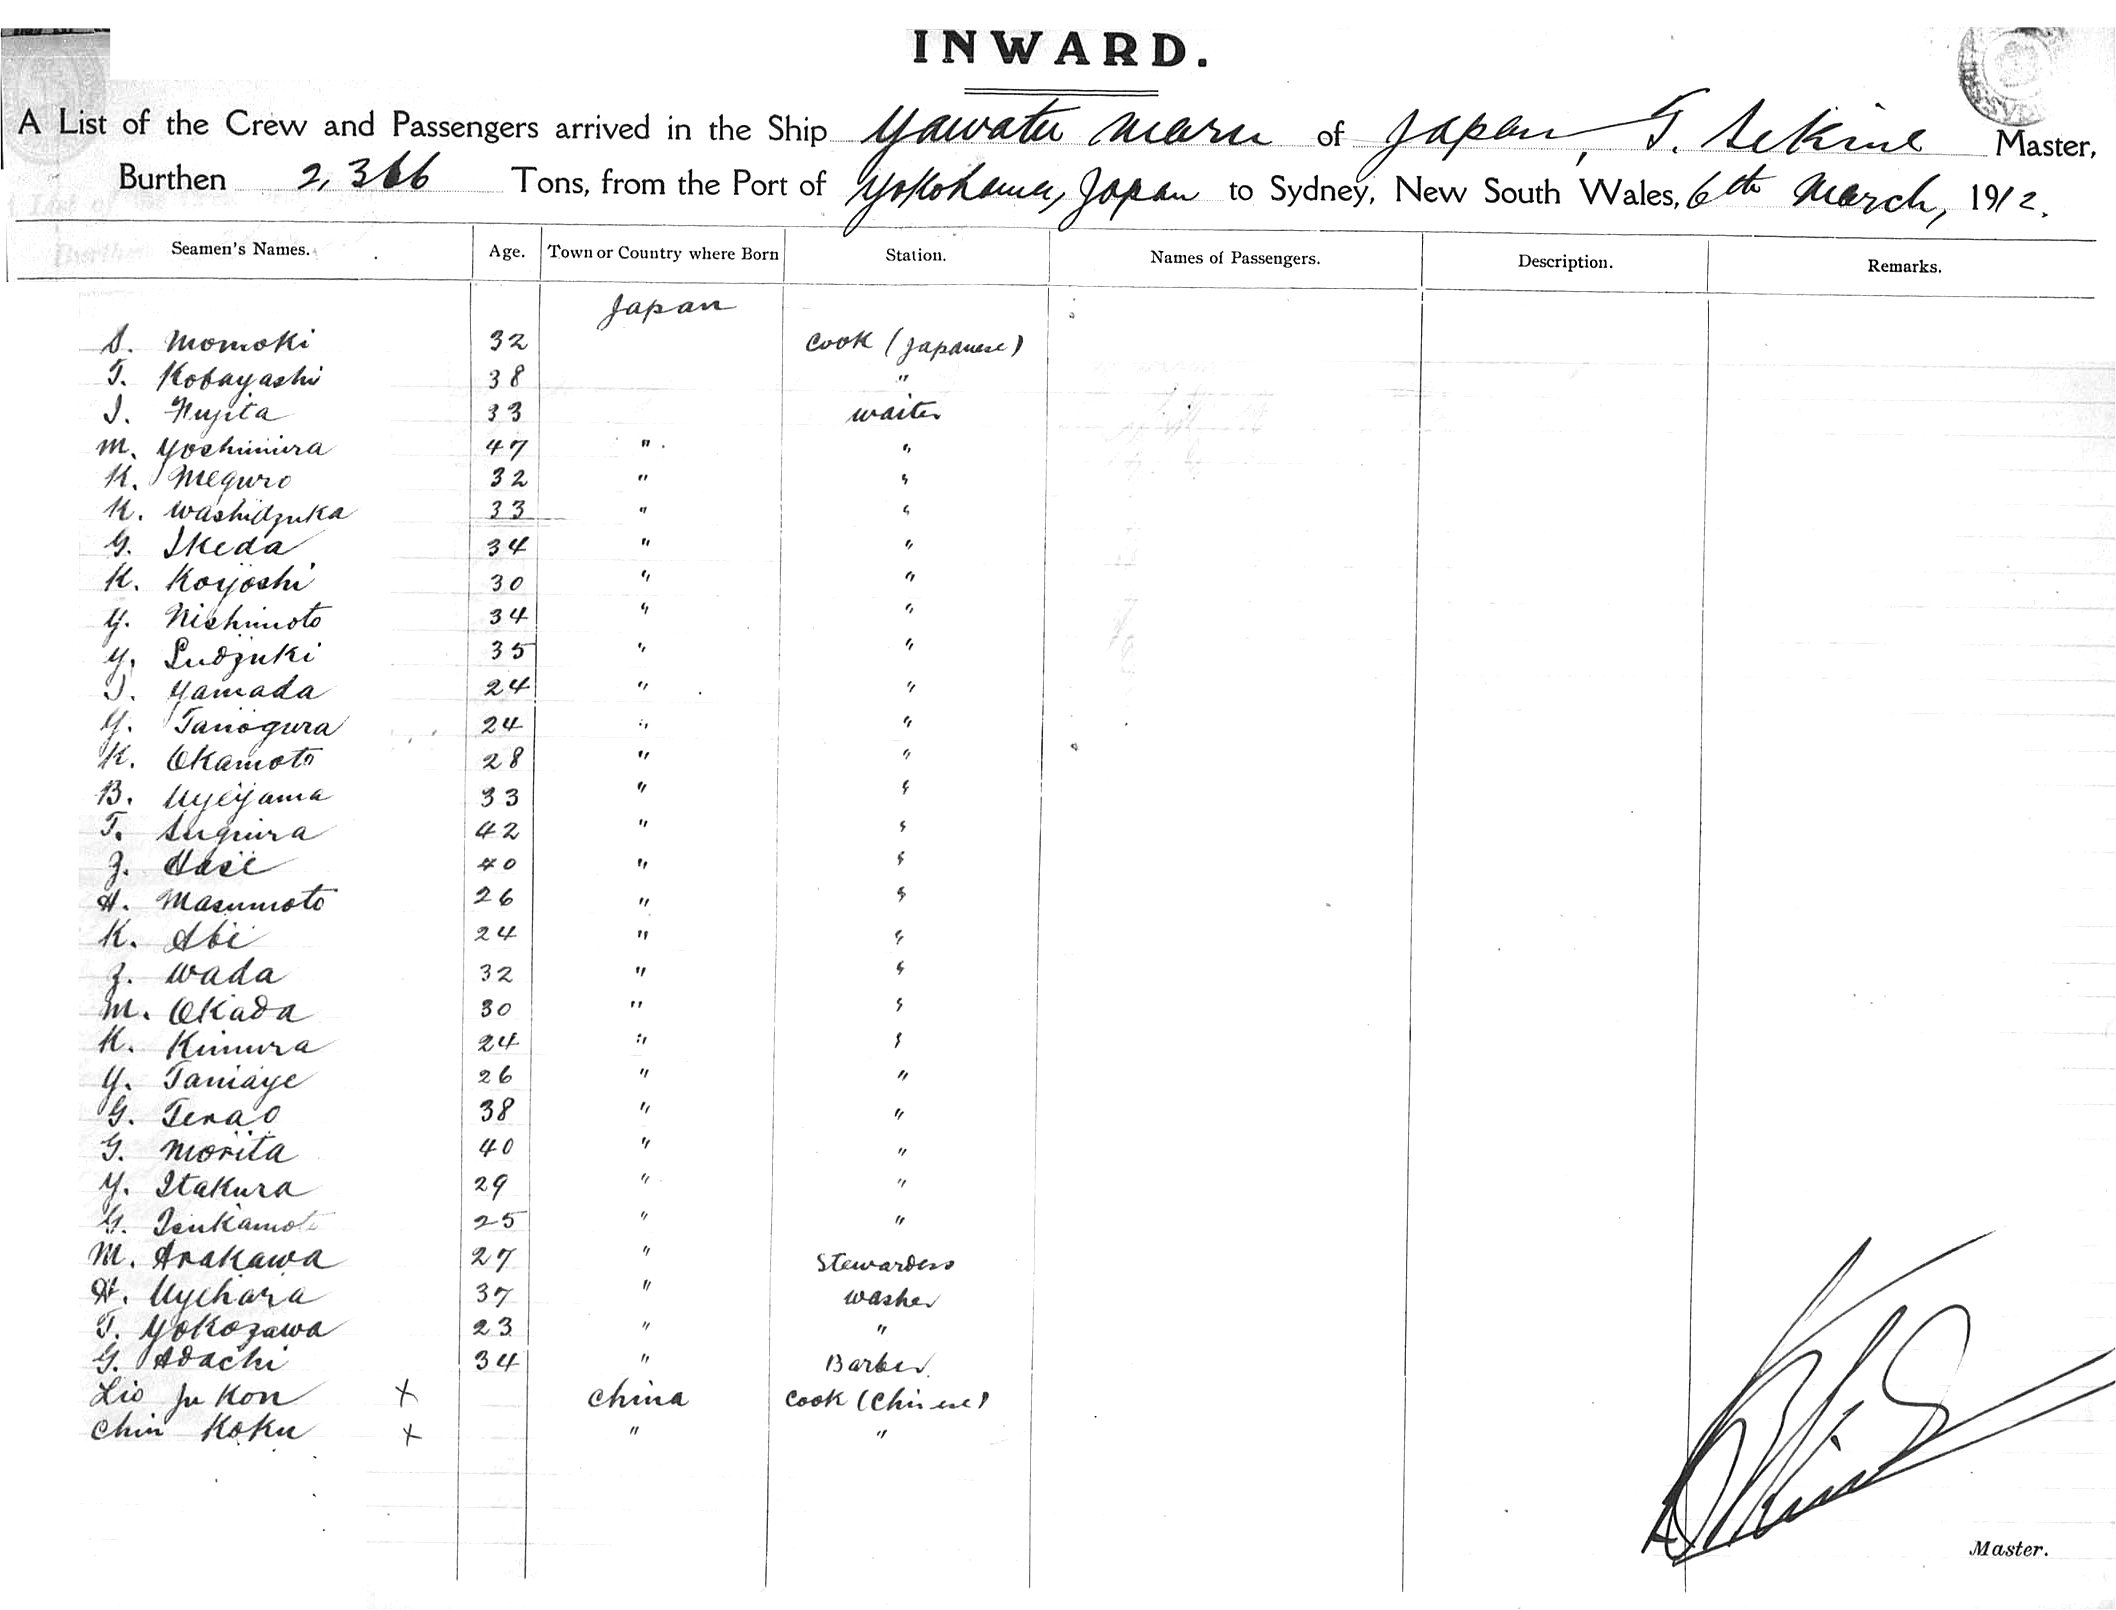 INWARD.
A List of the Crew and Passengers arrived in the Ship Yawata Maru of Japan, T. Sekine Master,
Burthen 2,366 Tons, from the Port of Yokohama, Japan to Sydney, New South Wales, 6th March, 1912.
Seamen's Names. Age. Town or Country where Born Station. Names of Passengers. Description. Remarks.
Japan
S. Momoki 32 Cook (Japanese)
T. Kobayashi 38 "
I. Fujita 33 waiter
M. Yoshimura 47 " "
K. Meguro 32 " "
K. Washidzuka 33 " "
G. Ikeda 34 " "
K. Koyoshi 30 " "
Y. Nishimoto 34 " "
Y. Sudzuki 35 " "
I. Yamada 24 " "
Y. Tanogura 24 " "
K. Okamoto 28 " "
B. Uyeyama 33 " "
T. Sugiura 42 " "
Z. Hase 40 " "
H. Masumoto 26 " "
K. Abe 24 " "
Z. Wada 32 " "
M. Okada 30 " "
K. Kimura 24 " "
Y. Tamaye 26 " "
G. Terao 38 " "
G. Morita 40 " "
Y. Itakura 29 " "
G. Tsukamoto 25 " "
M. Arakawa 27 " Stewardess
H. Uyehara 37 " washer
T. Yokozawa 23 " "
G. Adachi 34 " Barber
Lio Ju Kon X China Cook (Chinese)
Chin Koku X " "
Master.